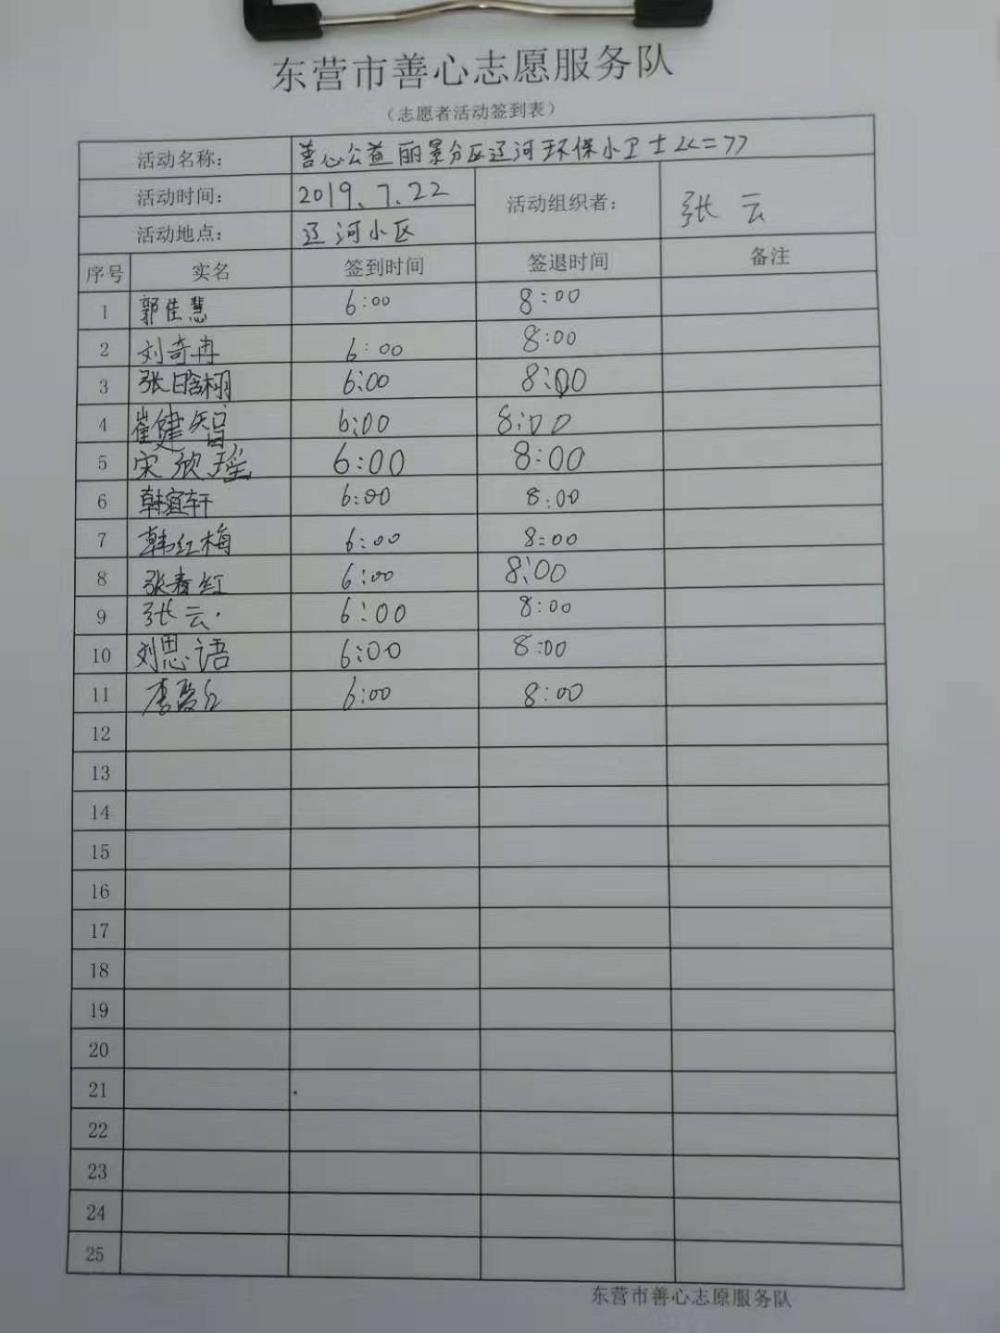 东营市善心志愿服务队
（志愿者活动签到表）
活动名称： 善心公益丽景分区辽河环保小卫士<<二>>
活动时间： 2019.7.22 活动组织者： 张云
活动地点： 辽河小区
序号 实名 签到时间 签退时间 备注
1 郭佳慧 6:00 8:00
2 刘奇冉 6:00 8:00
3 张晗栩 6:00 8:00
4 崔健智 6:00 8:00
5 宋欣瑶 6:00 8:00
6 韩宜轩 6:00 8:00
7 韩红梅 6:00 8:00
8 张春红 6:00 8:00
9 张云 6:00 8:00
10 刘思语 6:00 8:00
11 李 6:00 8:00
12
13
14
15
16
17
18
19
20
21
22
23
24
25
东营市善心志原服务队